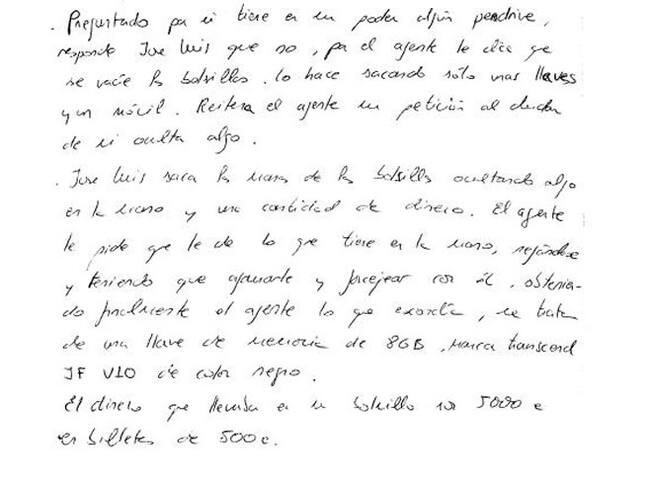 . Preguntado por si tiene en su poder algún pendrive,
responde Jose Luis que no, por el agente le dice que
se vacíe los bolsillos. lo hace sacando sólo unas llaves
y un móvil. Reitera el agente su petición al
de si oculta algo.
. Jose Luis saca las manos de los bolsillos ocultando algo
en la mano y una cantidad de dinero. El agente
le pide que le de lo que tiene en la mano, negándose
y teniendo que agarrarle y forcejear con él, obtenien-
do finalmente el agente lo que escondía, se trata
de una llave de memoria de 8GB, marca transcend
JF V10 de color negro.
El dinero que llevaba en su bolsillo son 5000 €
en billetes de 500 €.